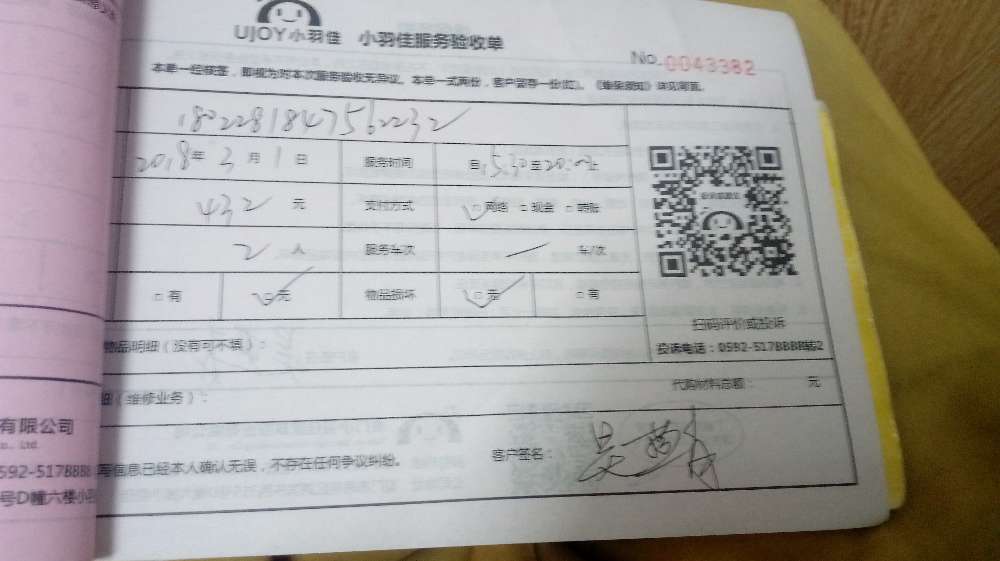 UJOY小羽佳 小羽佳服务验收单
No. 0043382
本单一经核签，即视为对本次服务验收无异议。本单一式两份，客户留存一份(红)。《维保须知》详见背面。
1802281847562232
2018年3月1日 服务时间 自15:30至20:00止
432元 支付方式 □网络 □现金 □转账
2人 服务车次 车/次
□有 □无 物品损坏 □无 □有
扫码评价或投诉
投诉电话：0592-5178888转2
物品明细（没有可不填）：
细（维修业务）： 代购材料总额： 元
写信息已经本人确认无误，不存在任何争议纠纷。 客户签名：
有限公司
Co., Ltd.
592-5178888
号D幢六楼小羽